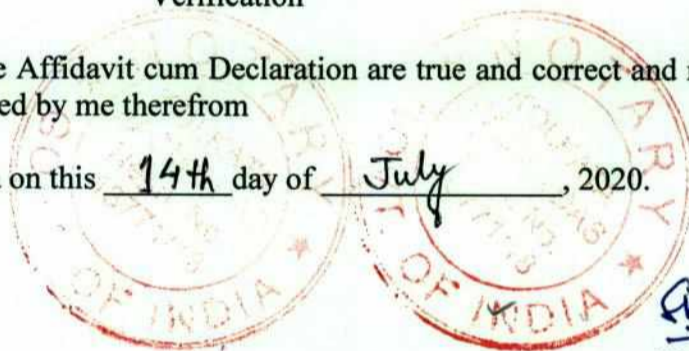 Verification
e Affidavit cum Declaration are true and correct and
ed by me therefrom
on this 14th day of July, 2020.
NOTARY
OF INDIA
NOTARY
OF INDIA